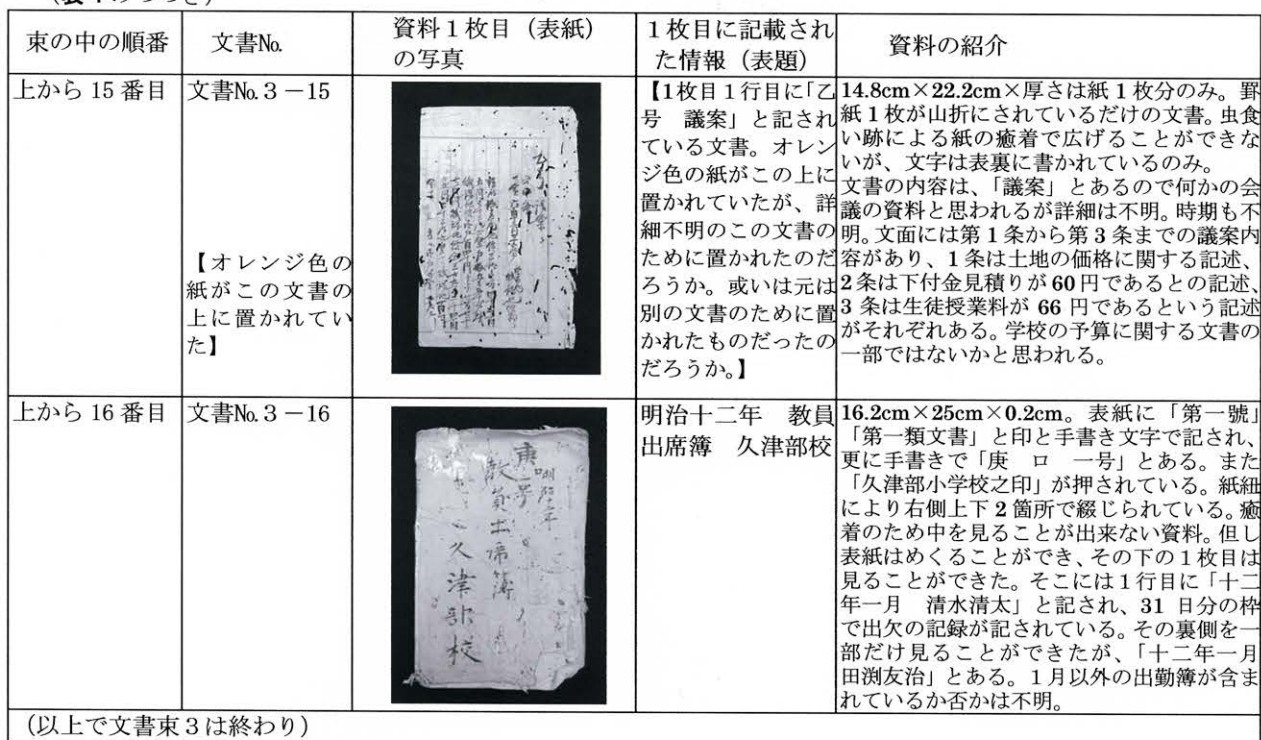 (表1のつづき)
束の中の順番
文書No.
資料1枚目(表紙)
の写真
1枚目に記載され
た情報(表題)
資料の紹介
上から 15 番目
文書No.3-15
【オレンジ色の
紙がこの文書の
上に置かれてい
た】
【1枚目1行目に「乙
号 議案」と記され
ている文書。オレン
ジ色の紙がこの上に
置かれていたが、詳
細不明のこの文書の
ために置かれたのだ
ろうか。或いは元は
別の文書のために置
かれたものだったの
だろうか。】
14.8cm×22.2cm×厚さは紙1枚分のみ。罫
紙1枚が山折にされているだけの文書。虫食
い跡による紙の癒着で広げることができな
いが、文字は表裏に書かれているのみ。
文書の内容は、「議案」とあるので何かの会
議の資料と思われるが詳細は不明。時期も不
明。文面には第1条から第3条までの議案内
容があり、1条は土地の価格に関する記述、
2条は下付金見積りが60円であるとの記述、
3条は生徒授業料が 66 円であるという記述
がそれぞれある。学校の予算に関する文書の
一部ではないかと思われる。
上から 16 番目
文書No.3-16
庚
口
一号
明治十二年
教員出席簿
久津部校
明治十二年 教員
出席簿 久津部校
16.2cm×25cm×0.2cm。表紙に「第一號」
「第一類文書」と印と手書き文字で記され、
更に手書きで「庚 ロ 一号」とある。また
「久津部小学校之印」が押されている。紙紐
により右側上下2箇所で綴じられている。癒
着のため中を見ることが出来ない資料。但し
表紙はめくることができ、その下の1枚目は
見ることができた。そこには1行目に「十二
年一月 清水清太」と記され、31 日分の枠
で出欠の記録が記されている。その裏側を一
部だけ見ることができたが、「十二年一月
田渕友治」とある。1月以外の出勤簿が含ま
れているか否かは不明。
(以上で文書束3は終わり)